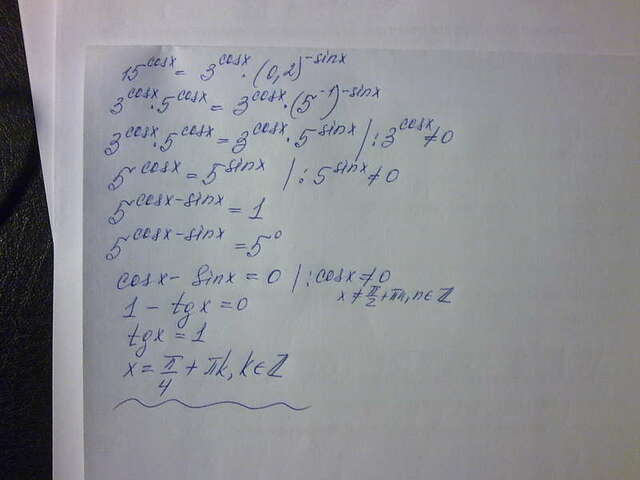 15^cosx = 3^cosx · (0,2)^-sinx
3^cosx · 5^cosx = 3^cosx · (5^-1)^-sinx
3^cosx · 5^cosx = 3^cosx · 5^-sinx | : 3^cosx ≠ 0
5^cosx = 5^sinx | : 5^sinx ≠ 0
5^cosx-sinx = 1
5^cosx-sinx = 5^0
cosx - sinx = 0 | : cosx ≠ 0
x ≠ π/2 + πn, n ∈ ℤ
1 - tgx = 0
tgx = 1
x = π/4 + πk, k ∈ ℤ